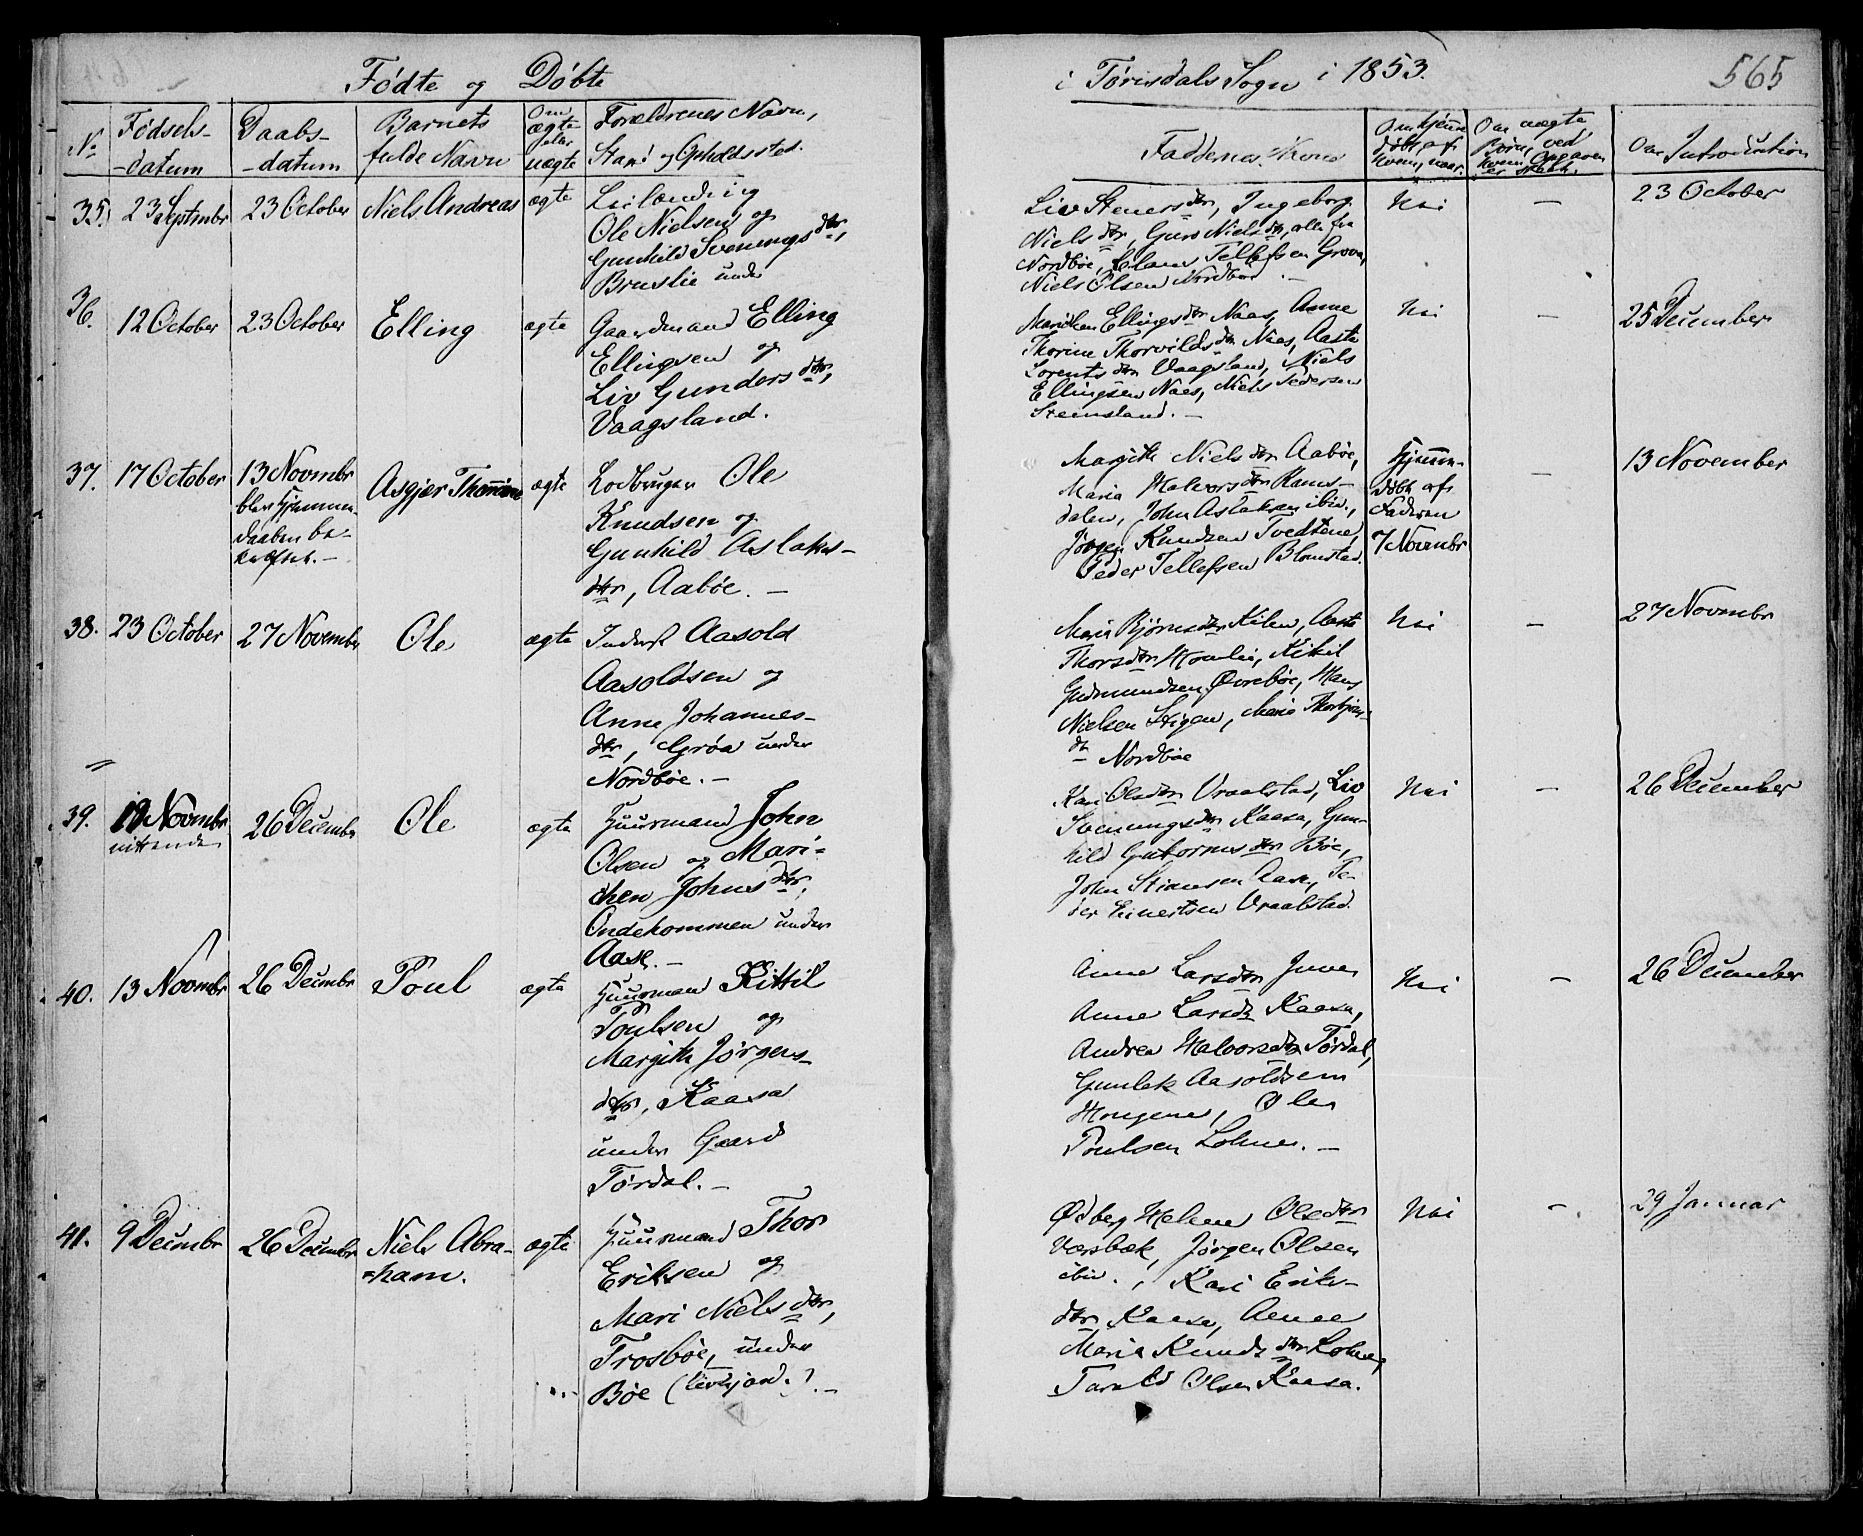 Fødte og Døbte
i Tørrisdals Sogn i 1853.
565
No
Fødsels-
-datum
Daabs-
-datum
Barnets
fulde Navn
Om
ægte
eller
uægte
Forældrenes Navn,
Stand og Opholdssted.
Faddernes Navne
Om hjemme-
døbt, af
hvem, naar.
Om uægte
Børn, ved
hvem Opgaven
er skeet.
Om Introduction
35. 23 Septembr
23 October
Niels Andreas
ægte
Leilænding
Ole Nielsen og
Gunhild Svenungsdtr,
Bruslie under
Liv Steners dtr, Ingeborg
Niels dtr, Guro Niels dtr, alle fra
Nordbøe, Tellefsen Groven,
Niels Olsen Nordbøe
Nei
—
23 October
36.
12 October
23 October
Elling
ægte
Gaardmand Elling
Ellingsen og
Liv Gunders dtr,
Vaagsland.
Mariken Ellings dtr Naas, Anne
Thorine Thorvilds dtr Naas, Aaste
Lorents dtr Vaagsland, Niels
Ellingsen Naes, Niels Pedersen
Steensland. —
Nei
—
25 December
37. 17 October
13 Novembr
blev Hjemme-
daaben be-
kræftet. —
Asgjer
ægte
Lodbruger Ole
Knudsen og
Gunhild Aslaks-
dtr, Aabøe. —
Margith Niels dtr Aabøe,
Maria Halvors dtr Rams-
dalen, John Aslaksen ibid.,
Jørgen Knudsen Tvedtene,
Peder Tellefsen Blomstad.
Hjemme-
døbt af
Faderen
7 Novembr
—
13 November
38. 23 October
27 Novembr
Ole
ægte
Inderst Aasold
Aasoldsen og
Anne Johannes-
dtr, Grøa under
Nordbøe. —
Maria Bjørns dtr Kilen, Aaste
Thorsdtr Homlie, Kittil
Gudmundsen Øvrebøe, Hans
Nielsen Stigen, Marie Thorbjørns-
dtr Nordbøe
Nei
—
27 Novembr
39. 19 Novembr
nittende
26 Decembr
Ole
ægte
Huusmand John
Olsen og Mari-
chen Johns dtr,
Ondekommen under
Aase. —
Kari Olsdtr Vraalstad, Liv
Svenungsdtr Kaasa, Gun-
hild Guttorms dtr Bøe,
John Stiansen Aase, Pe-
der Einertsen Vraalstad.
Nei
—
26 December
40. 13 Novembr
26 Decembr
Poul
ægte
Huusmand Kittil
Poulsen og
Margith Jørgens-
dtr, Kaasa
under Gaard
Tørdal. —
Anne Larsdtr Juven
Anne Larsdtr Kaasa,
Andrea Halvorsdtr Tørdal,
Gunlek Aasoldsen
Haugene, Ole
Poulsen Lohne. —
Nei
—
26 December
41. 9 Decembr
26 Decembr
Niels Abra-
=ham.
ægte
Huusmand Thor
Eriksen og
Mari Niels dtr,
Trosbøe, under
Bøe
Ødberg Helene Olsdtr
Værsbæk, Jørgen Olsen
ibid., Kari Eriks-
dtr Kaasa, Anne
Maria Knuds dtr Lohne,
Tarald Olsen Kaasa.
Nei
—
29 Januar